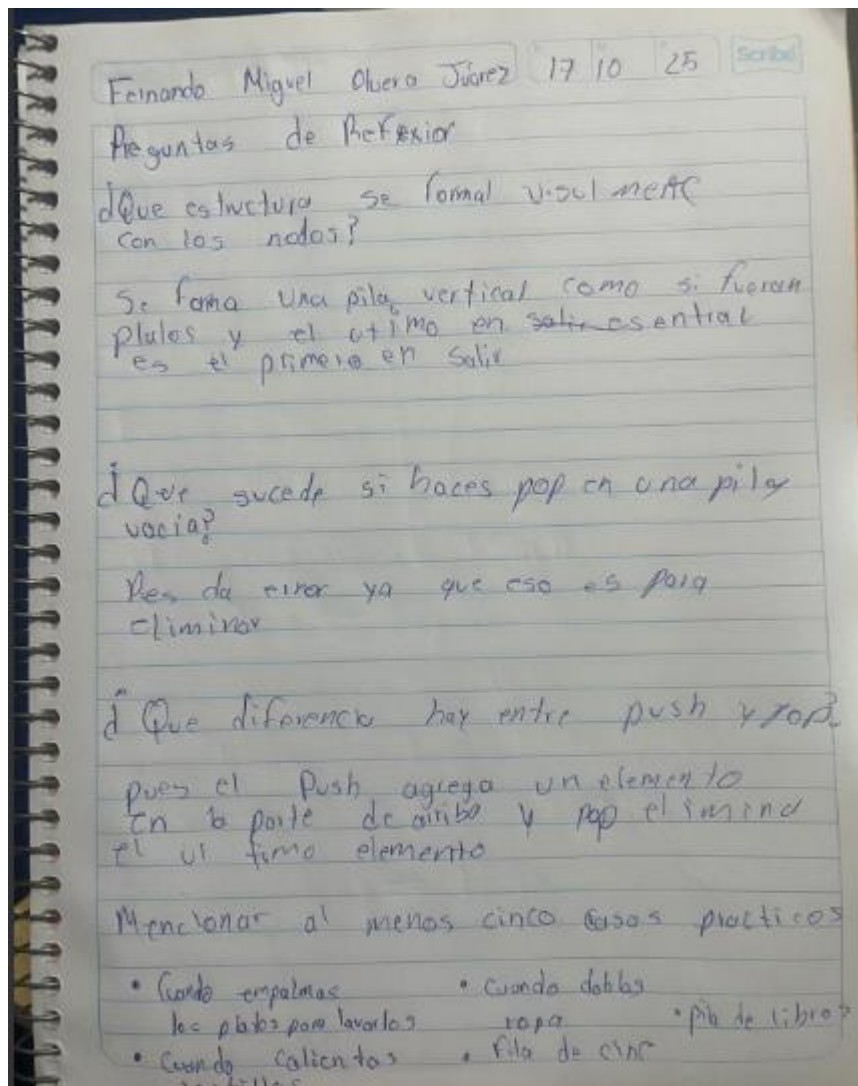 Fernando Miguel Olvera Júarez 17 10 25 Scribe
Preguntas de Reflexior
¿Que estuctura se formal visulmente
con los nodos?
Se forma una pila vertical como si fueran
platos y el utimo en salir es entrar
es el primero en salir
¿Que sucede si haces pop en una pila
vacia?
Res da error ya que eso es para
eliminar
¿Que diferencia hay entre push y pop?
pues el Push agrega un elemento
en la parte de arriba y pop elimina
el ultimo elemento
Mencionar al menos cinco casos practicos
• Cuando empalmas • Cuando doblas
los platos para lavarlos ropa • pila de libros
• Cuando calientas • Fila de cine